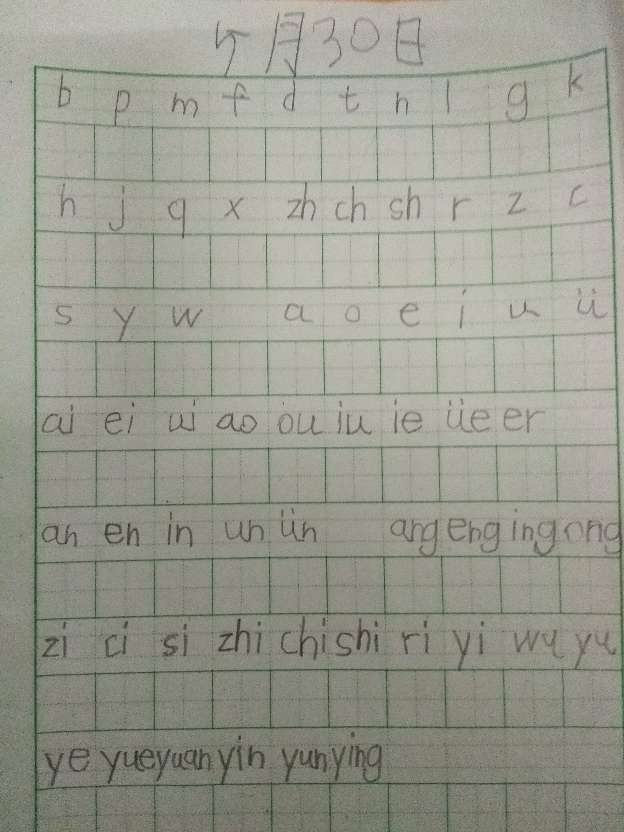 月30日
b p m f d t n l g k
h j q x zh ch sh r z c
s y w a o e i u ü
ai ei ui ao ou iu ie üe er
an en in un ün ang eng ing ong
zi ci si zhi chi shi ri yi wu yu
ye yue yuan yin yun ying